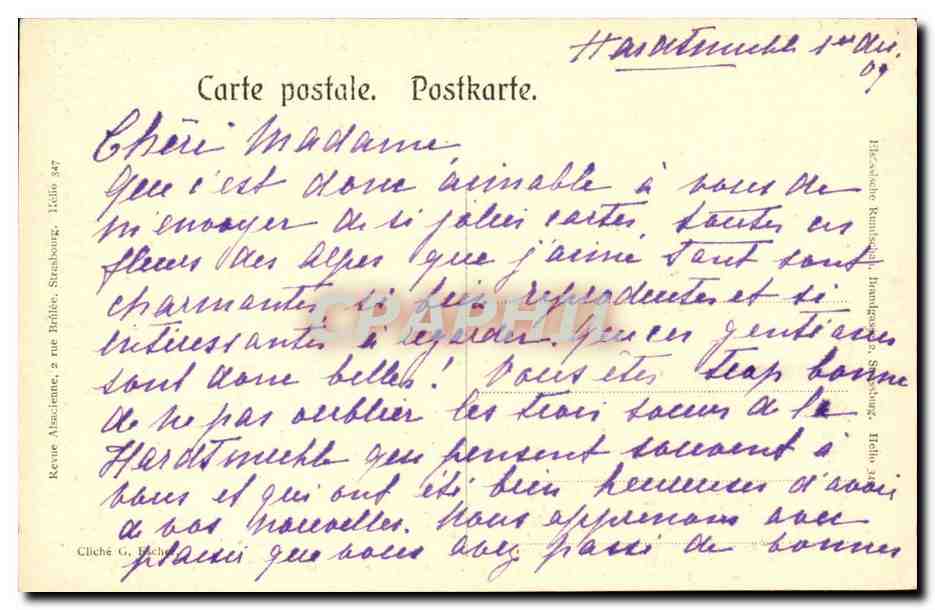 Hardtmuehle 1er déc.
09
Carte postale. Postkarte.
Chère Madame,
Que c'est donc aimable à vous de
m'envoyer de si jolies cartes, toutes ces
fleurs des alpes que j'aime tant sont
charmantes si bien reproduites et si
intéressantes à regarder. Que ces gentianes
sont donc belles! Vous êtes trop bonne
de ne pas oublier les trois soeurs de la
Hardtmuehle qui pensent souvent à
vous et qui ont été bien heureuses d'avoir
de vos nouvelles. Nous apprenons avec
plaisir que vous avez passé de bonnes
Revue Alsacienne, 2 rue Brûlée, Strasbourg. Hélio 347
Elsässische Rundschau, Brandgasse 2, Strassburg. Helio 34
Cliché G. Escher.
CPAPHIL